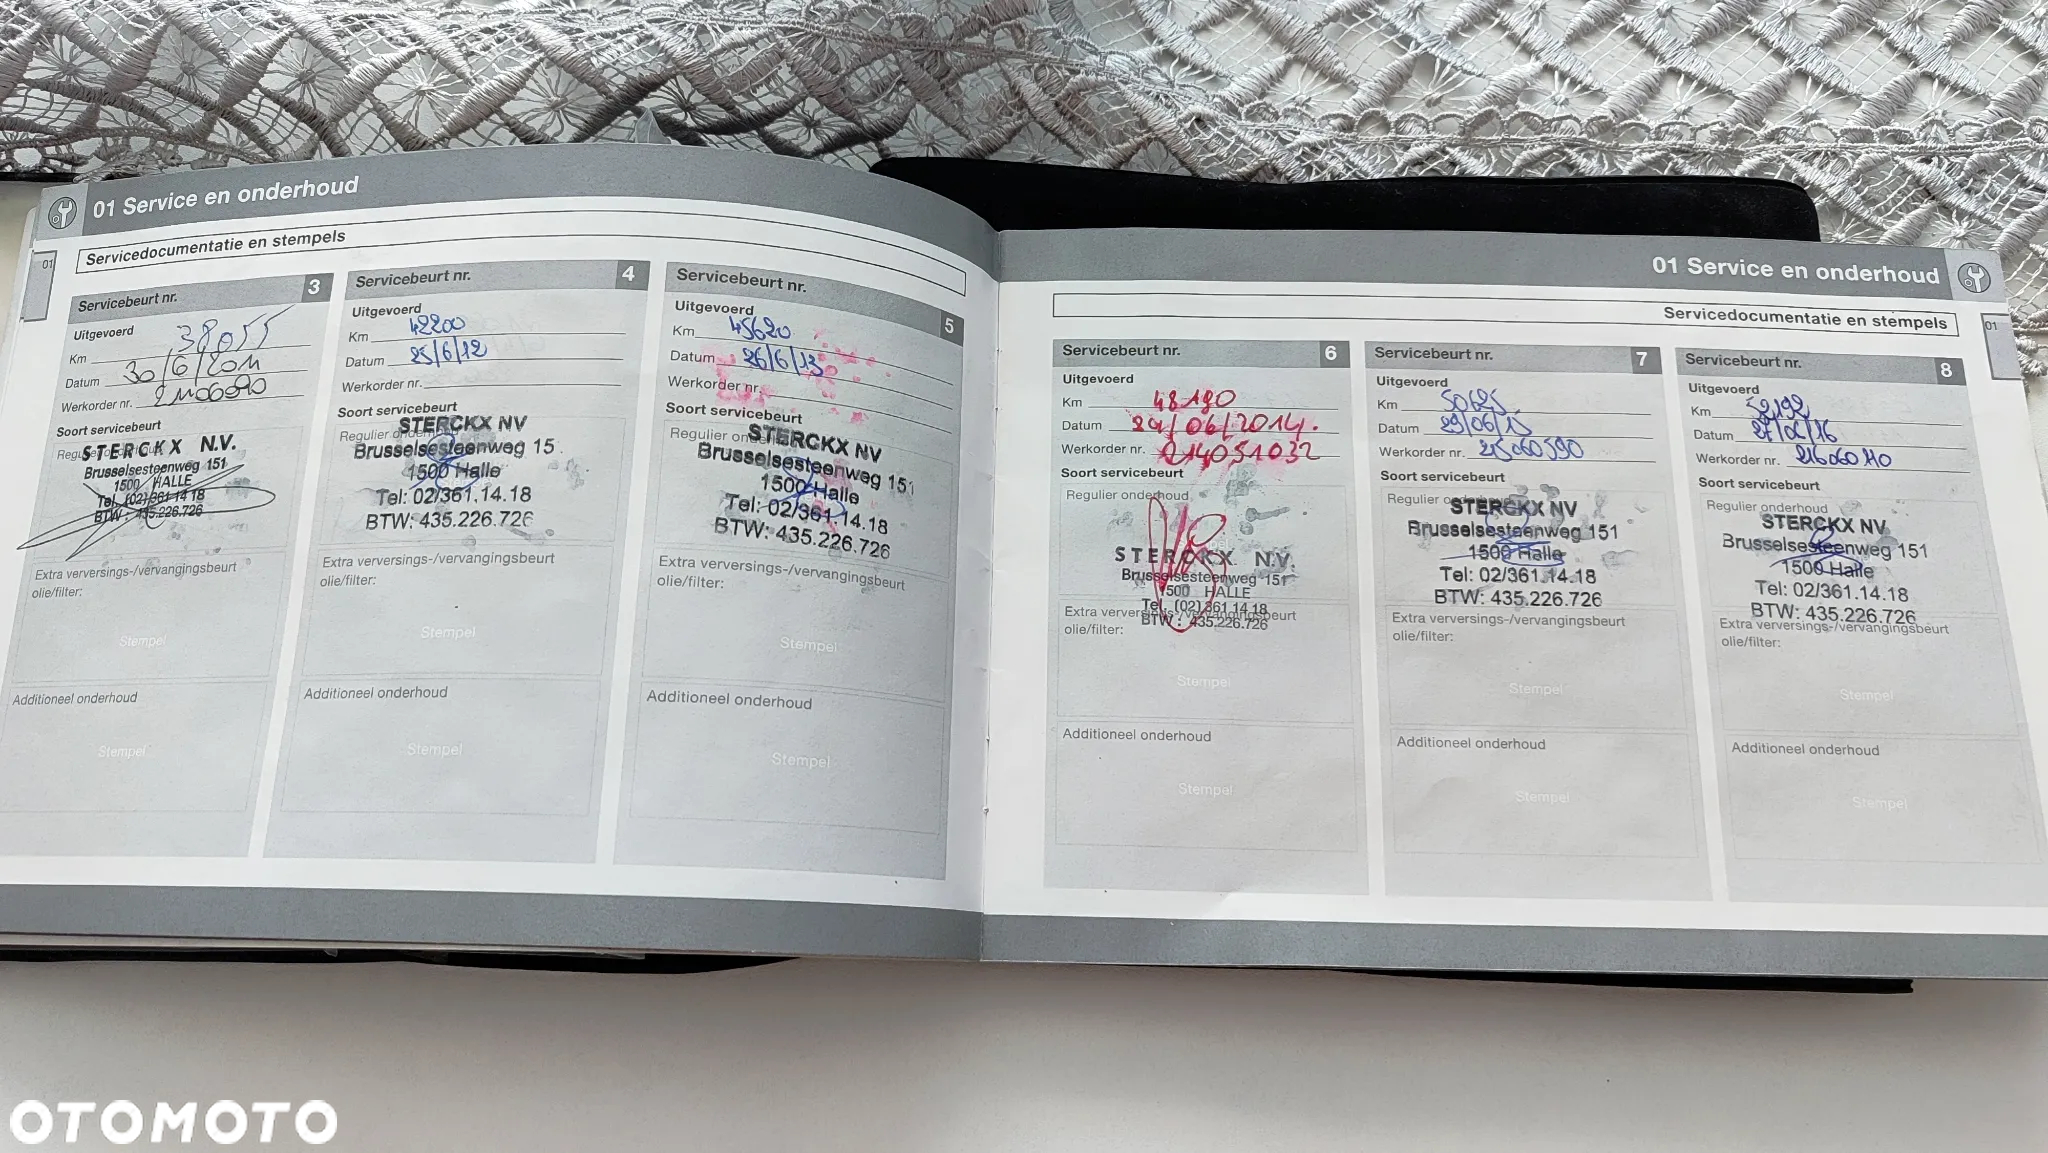 01 Service en onderhoud
01
Servicedocumentatie en stempels
Servicebeurt nr. 3
Uitgevoerd
Km 38055
Datum 30/6/2011
Werkorder nr.
Soort servicebeurt
STERCKX N.V.
Brusselsesteenweg 151
1500 HALLE
Tel. (02) 361 14 18
BTW: 435.226.726
Extra verversings-/vervangingsbeurt
olie/filter:
Stempel
Additioneel onderhoud
Stempel
Servicebeurt nr. 4
Uitgevoerd
Km 42200
Datum 25/6/12
Werkorder nr.
Soort servicebeurt
STERCKX NV
Regulier
Brusselsesteenweg 15
1500 Halle
Tel: 02/361.14.18
BTW: 435.226.726
Extra verversings-/vervangingsbeurt
olie/filter:
Stempel
Additioneel onderhoud
Stempel
Servicebeurt nr. 5
Uitgevoerd
Km 45620
Datum 26/6/13
Werkorder nr.
Soort servicebeurt
STERCKX NV
Regulier
Brusselsesteenweg 151
1500 Halle
Tel: 02/361.14.18
BTW: 435.226.726
Extra verversings-/vervangingsbeurt
olie/filter:
Stempel
Additioneel onderhoud
Stempel
01 Service en onderhoud
01
Servicedocumentatie en stempels
Servicebeurt nr. 6
Uitgevoerd
Km 48190
Datum 24/06/2014.
Werkorder nr. 214051032
Soort servicebeurt
Regulier onderhoud
STERCKX N.V.
Brusselsesteenweg 151
1500 HALLE
Tel. (02) 361 14 18
BTW: 435.226.726
Extra verversings-/vervangingsbeurt
olie/filter:
Stempel
Additioneel onderhoud
Stempel
Servicebeurt nr. 7
Uitgevoerd
Km 50625
Datum 29/06/15
Werkorder nr. 215060590
Soort servicebeurt
Regulier
STERCKX NV
Brusselsesteenweg 151
1500 Halle
Tel: 02/361.14.18
BTW: 435.226.726
Extra verversings-/vervangingsbeurt
olie/filter:
Stempel
Additioneel onderhoud
Stempel
Servicebeurt nr. 8
Uitgevoerd
Km 52192
Datum
Werkorder nr.
Soort servicebeurt
Regulier onderhoud
STERCKX NV
Brusselsesteenweg 151
1500 Halle
Tel: 02/361.14.18
BTW: 435.226.726
Extra verversings-/vervangingsbeurt
olie/filter:
Stempel
Additioneel onderhoud
Stempel
OTOMOTO